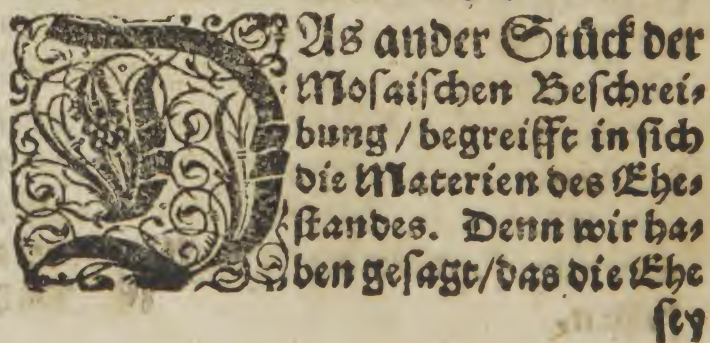 DAs ander Stück der
Mosaischen Beschrei-
bung / begreifft in sich
die Materien des Ehe-
standes. Denn wir ha-
ben gesagt / das die Ehe
sey